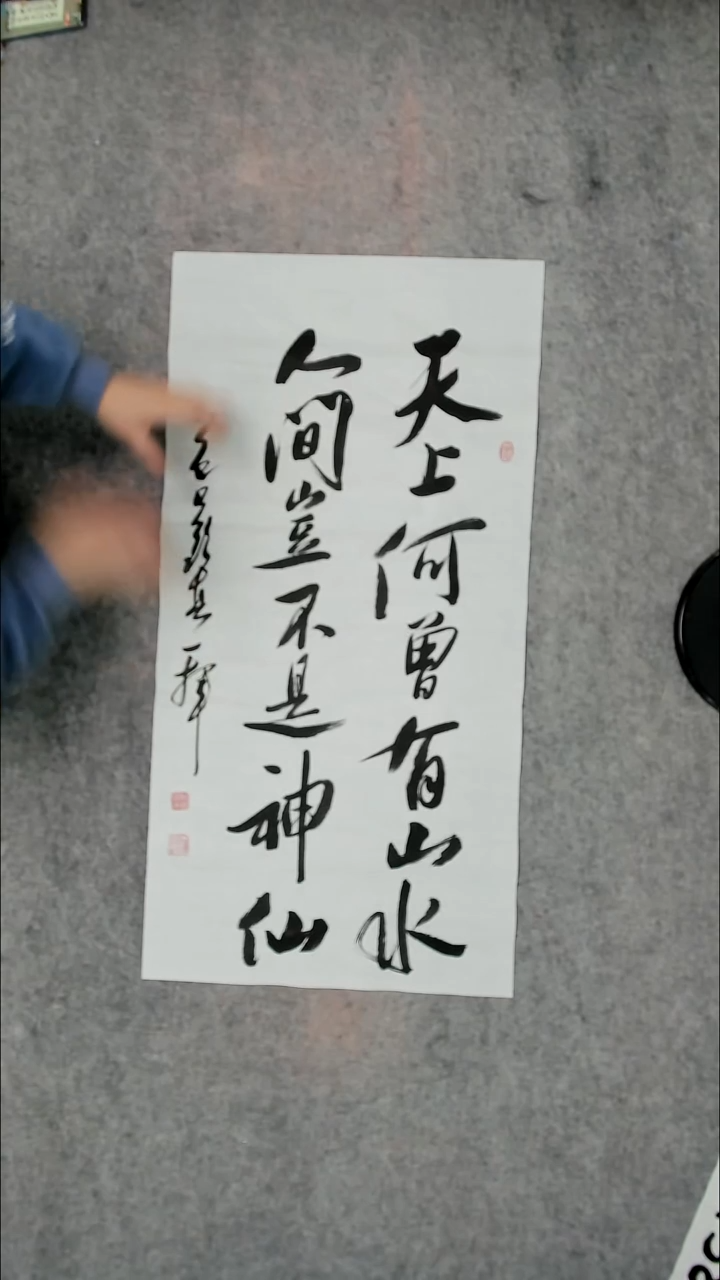 天上何曾有山水
人間豈不是神仙